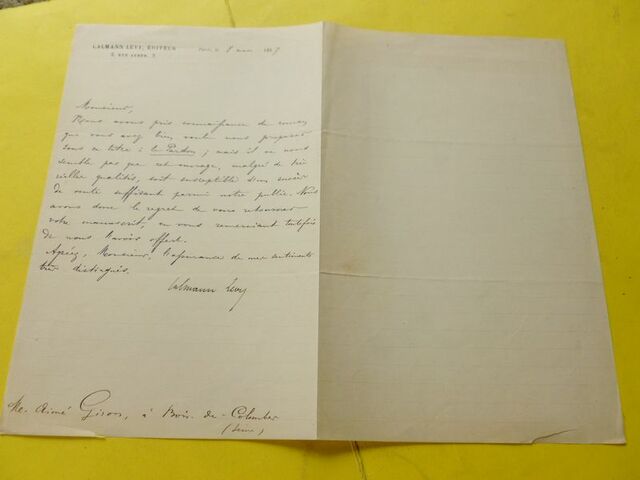 CALMANN LÉVY, ÉDITEUR
3, RUE AUBER, 3
Paris, le 8 mars 1887
Monsieur,
Nous avons pris connaissance du roman
que vous avez bien voulu nous proposer
sous ce titre : le Pardon ; mais il ne nous
semble pas que cet ouvrage, malgré de ré-
elles qualités, soit susceptible d'un succès
de vente suffisant parmi notre public. Nous
avons donc le regret de vous retourner
votre manuscrit, en vous remerciant toutefois
de nous l'avoir offert.
Agréez, Monsieur, l'assurance de mes sentiments
très distingués.
Calmann Lévy
M. Aimé Giron, à Bois-de-Colombes
(Seine)